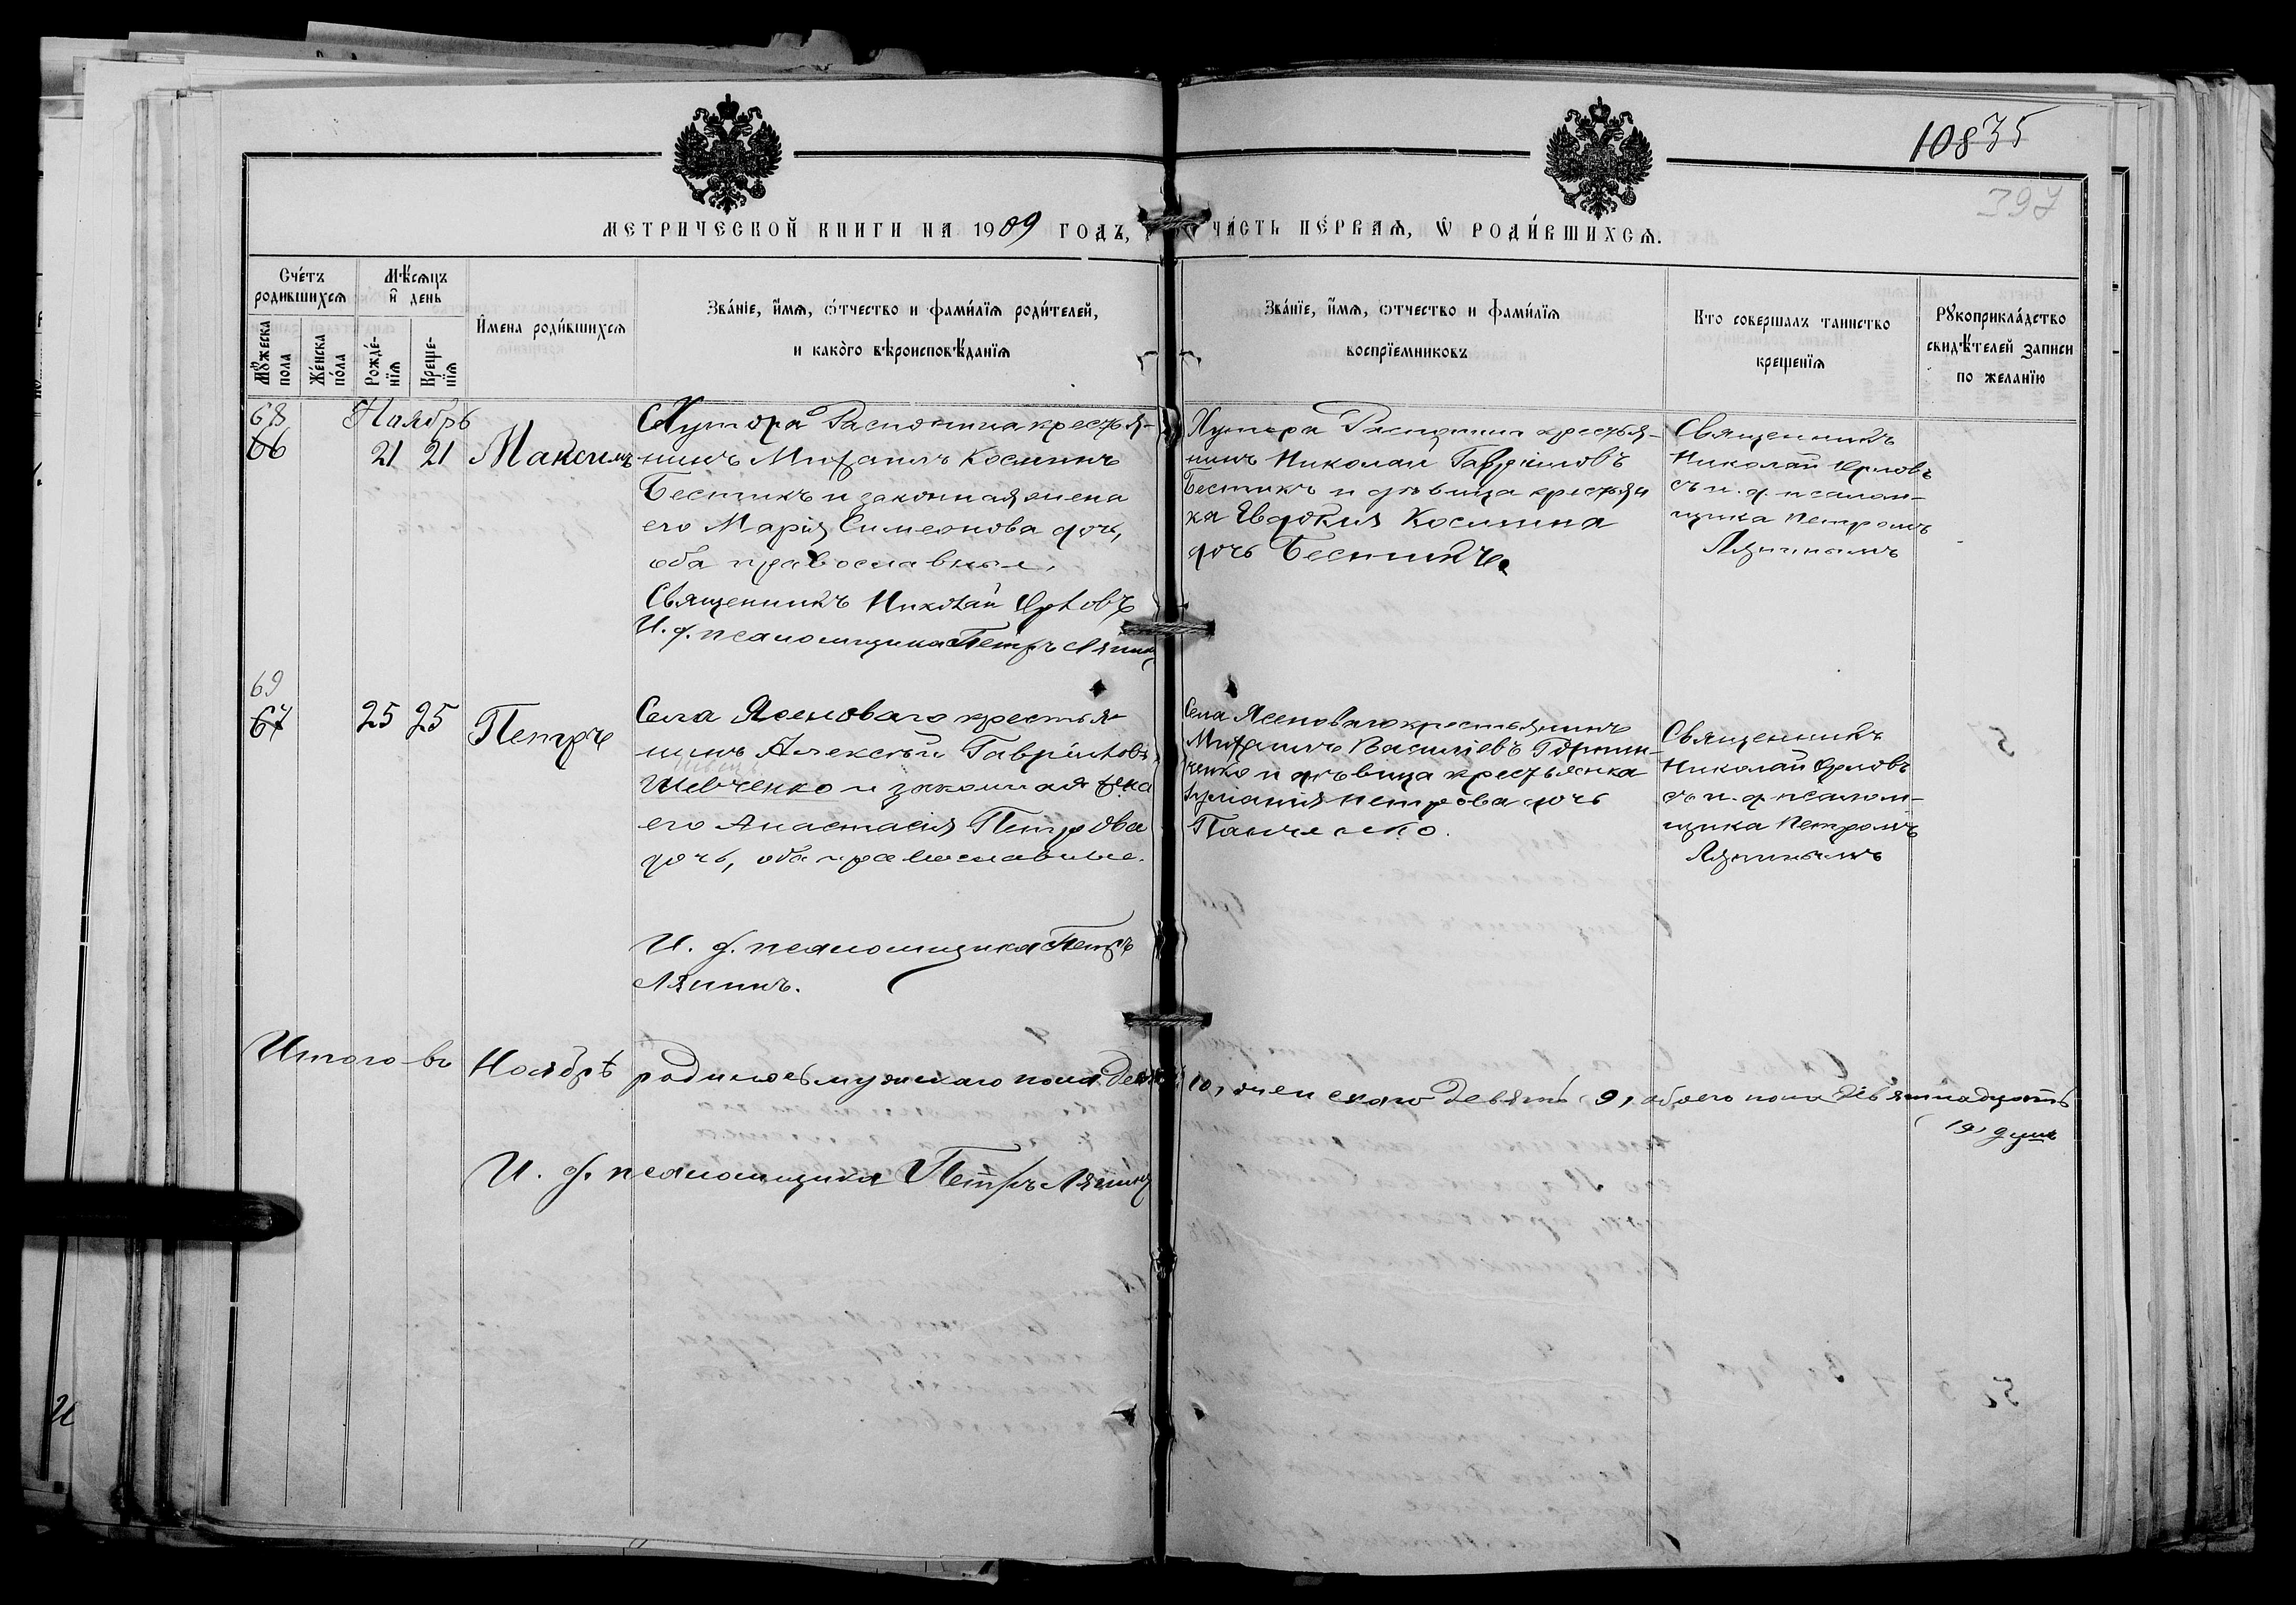 1083̶5̶
397
МЕТРИЧЕСКОЙ КНИГИ НА 1909 ГОДЪ, ЧА́СТЬ ПЕ́РВАѦ, Ѡ РОДИ́ВШИХСѦ.
Сче́тъ родившихсѧ
Мꙋ́жеска пола
Же́нска по́ла
Мѣ́сѧцъ и҆ день
Рожде́-нїѧ
Креще-нїѧ
И҆мена роди́вшихсѧ
Зва́нїе, и҆́мѧ, ѻ҆́тчество и фами́лїѧ роди́телей,
и како́гѡ вѣроисповѣ́данїѧ
Зва́нїе, и҆́мѧ, ѻтчество и фами́лїѧ
воспрїемниковъ
Кто совершалъ таинство
крещенїѧ
Рꙋкоприкла́дство
свидѣ́телей записи
по желанїю
68
66
Ноябрь
21 21
Максимъ
Хутора Распопина крестья-
нинъ Михаилъ Косминъ
Бестикъ и законная жена
его Марія Симеонова дочь,
оба православные.
Священникъ Николай Орловъ
И. д. псаломщика Петръ Ляпинъ
Хутора Распопина крестья-
нинъ Николай Гавріиловъ
Бестикъ и дѣвица крестьян
ка Евдокия Космина
дочь Бестикъ.
Священникъ
Николай Орловъ
съ и. д. псалом-
щика Петромъ
Ляпинымъ
69
67
25 25
Петръ
Села Ясеноваго крестья-
нинъ Алексѣй Гавріиловъ
Шевченко и законная жена
его Анастасія Петрова
дочь, оба православные.
И. д. псаломщика Петръ
Ляпинъ.
Села Ясеноваго крестьянинъ
Михаилъ Васильевъ
и дѣвица крестьянка
Петрова дочь
Панченко.
Священникъ
Николай Орловъ
съ и. д. псалом-
щика Петромъ
Ляпинымъ
Итого въ Ноябрѣ родилось мужскаго пола 10, женскаго девять 9, обоего пола девятнадцать
19 душъ
И. д. псаломщика Петръ Ляпинъ